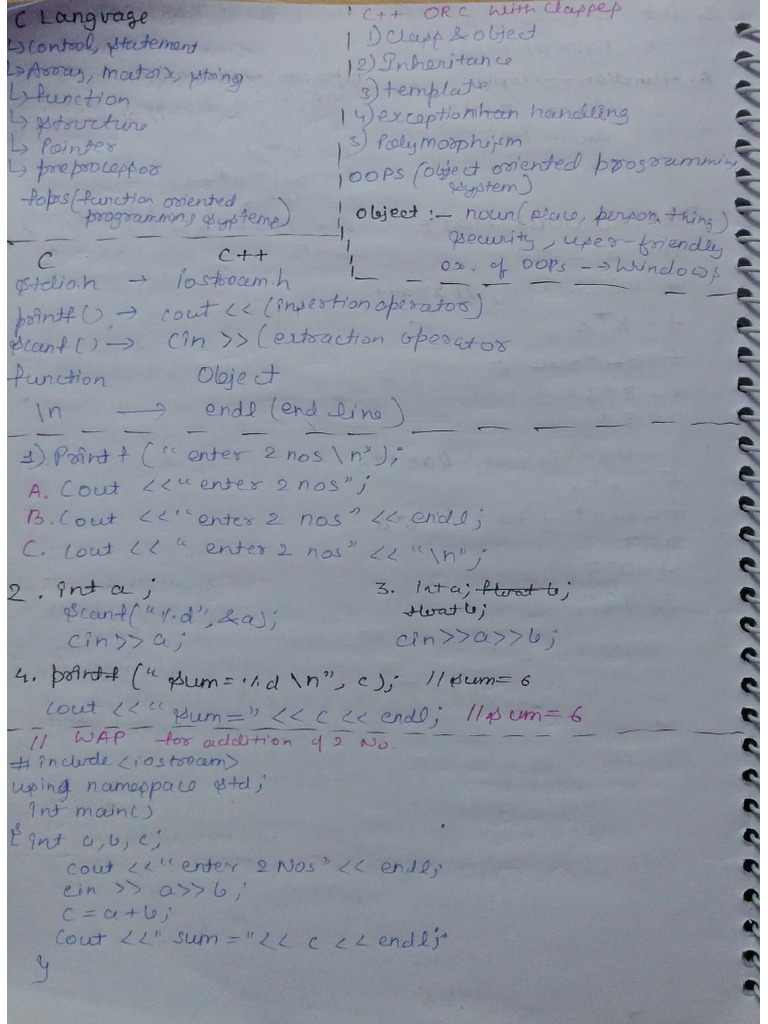 C Language
↳ control, statement
↳ Array, matrix, string
↳ function
↳ structure
↳ Pointer
↳ preprocessor
fops (function oriented
programming systems)
C++ OR C with Classes
1) Class & object
2) Inheritance
3) template
4) exceptionhan handling
5) Polymorphism
OOPS (object oriented programming
system)
object :- noun (place, person, thing)
security, user-friendly
ex. of OOPs → Windows
C C++
stdio.h → iostream.h
printf () → cout << (insertion operator)
scanf () → cin >> (extraction operator
function Object
\n → endl (end line)
1) Printf (" enter 2 nos \n");
A. Cout << "enter 2 nos";
B. Cout << "enter 2 nos" << endl;
C. Cout << " enter 2 nos" << "\n";
2. int a;
scanf("%d", &a);
cin >> a;
3. Int a; float b;
float b;
cin>>a>>b;
4. printf (" sum = %d \n", c); // sum = 6
Cout << " sum=" << c << endl; // sum = 6
// WAP for addition of 2 No.
# include <iostream>
using namespace std;
int main()
{ int a, b, c;
cout << "enter 2 Nos" << endl;
cin >> a>>b;
c = a+b;
Cout << " sum = " << c << endl;
}